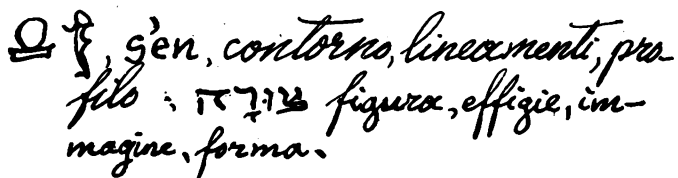 , s'en, contorno, lineamenti, pro-
filo ; צוּרָה figura, effigie, im-
magine, forma.